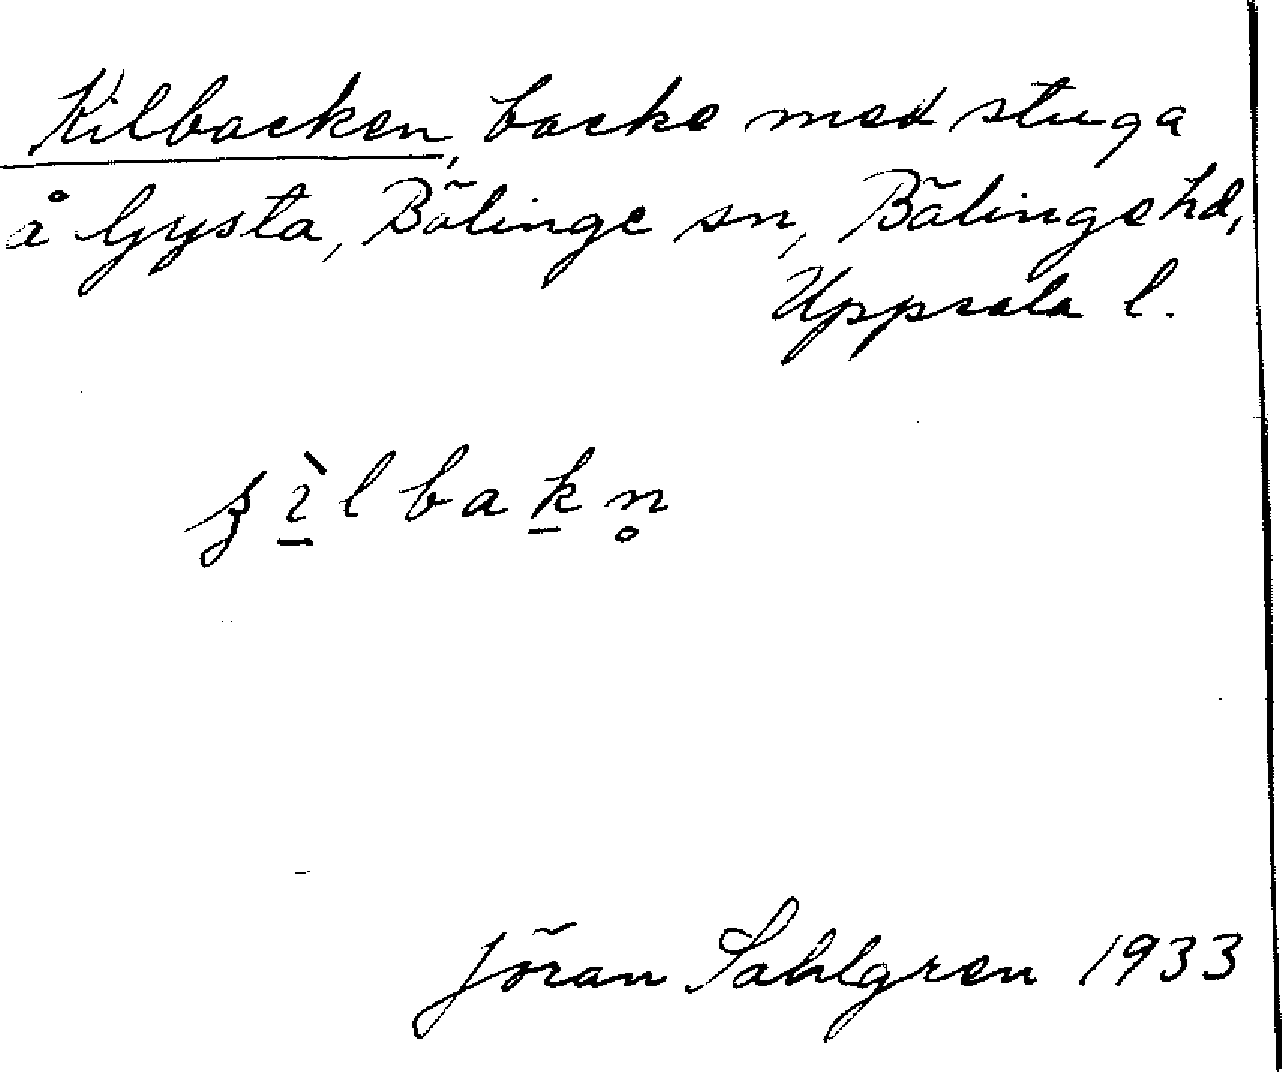 Kilbacken, backe med stuga
å Gysta, Bälinge sn, Bälinge hd,
Uppsala l.
Jöran Sahlgren 1933